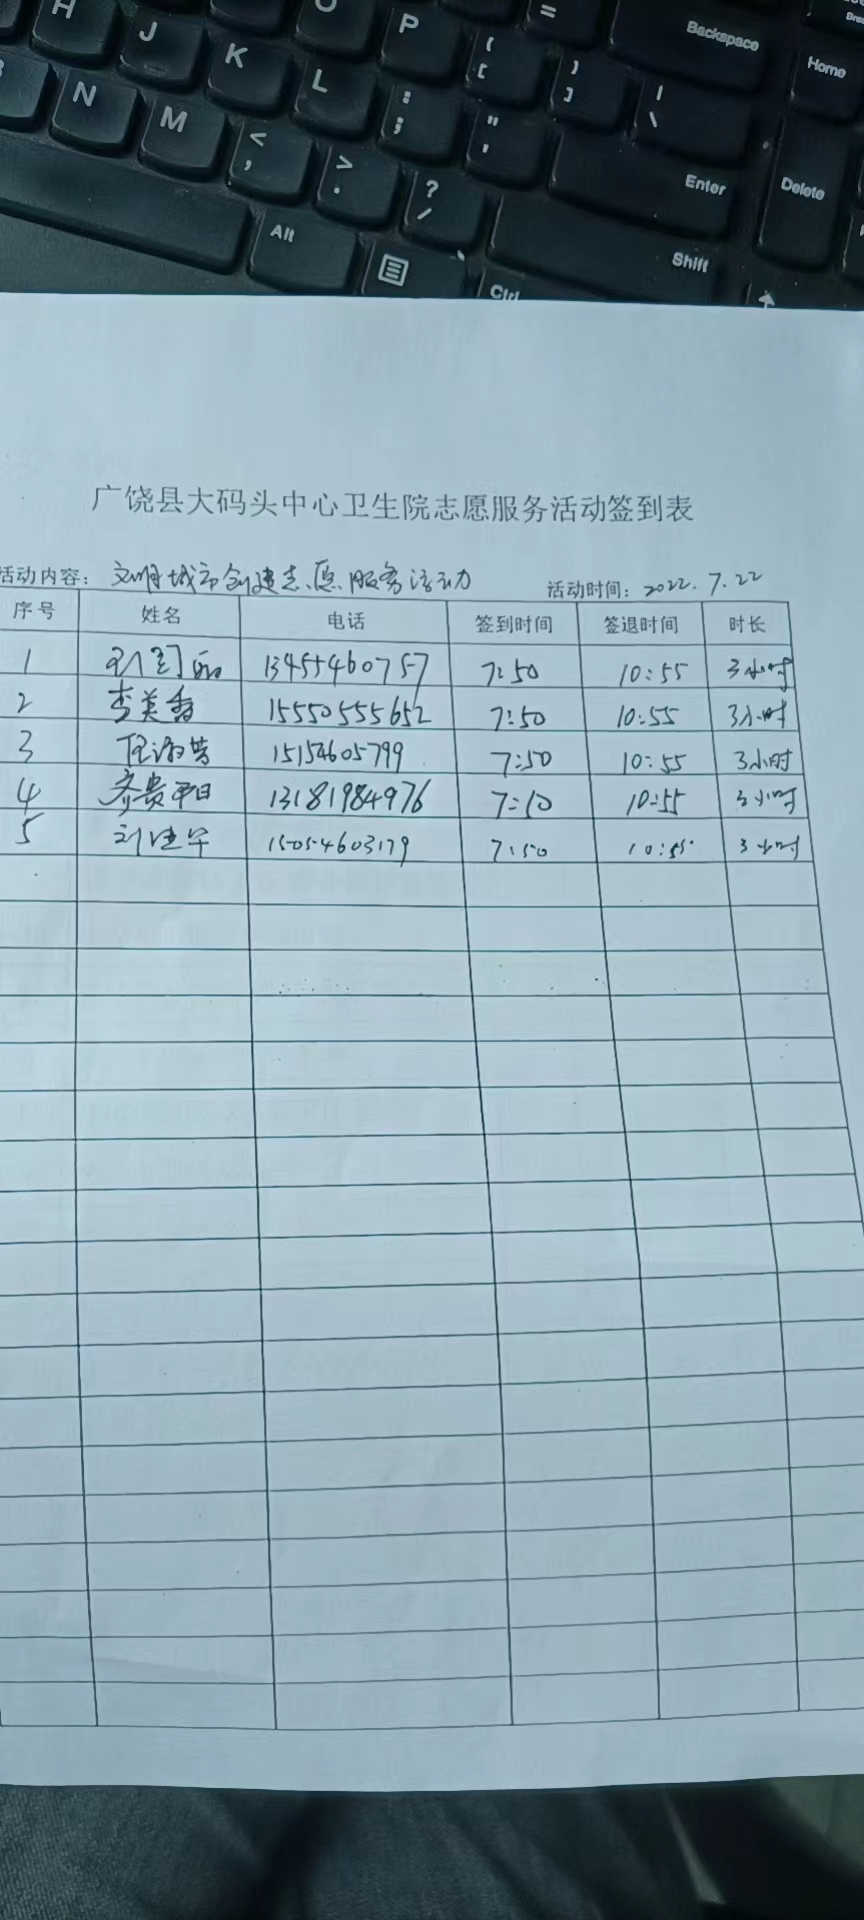 H J K L O P { [ } ] = Backspace Home
N M < , > . : ; " ' | \ Enter Delete
Alt ? / Shift
Ctrl
广饶县大码头中心卫生院志愿服务活动签到表
活动内容：文明城市创建志愿服务活动 活动时间：2022.7.22
序号 姓名 电话 签到时间 签退时间 时长
1 13455460757 7:50 10:55 3小时
2 李美香 15550555652 7:50 10:55 3小时
3 任淑芳 15154605799 7:50 10:55 3小时
4 齐贵阳 13181984976 7:50 10:55 3小时
5 刘建华 15054603179 7:50 10:55 3小时